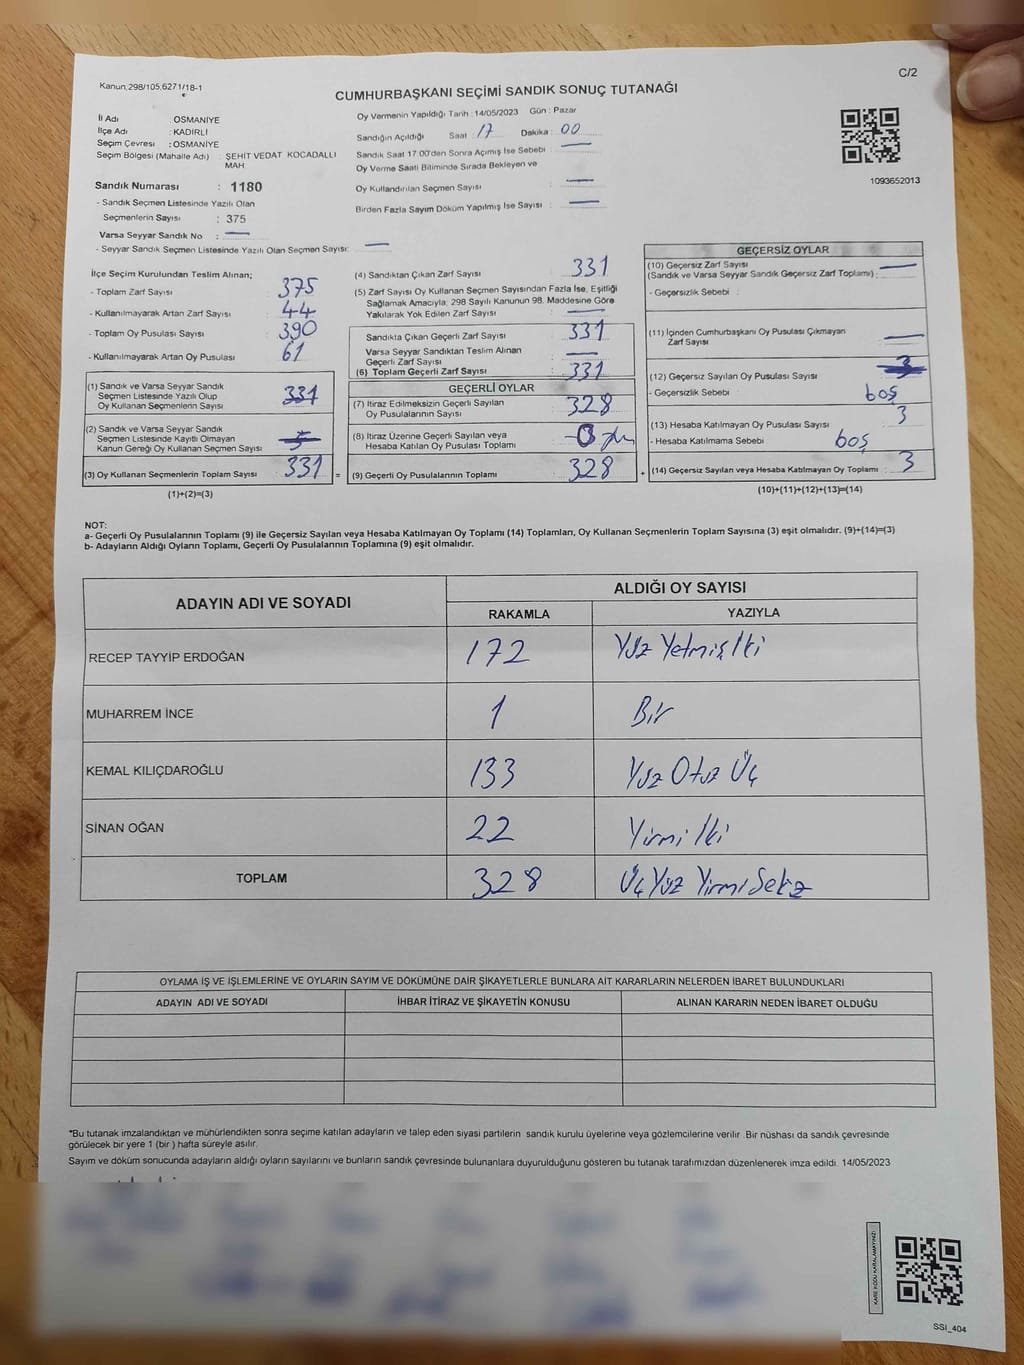 Kanun;298/105;6271/18-1
C/2
CUMHURBAŞKANI SEÇİMİ SANDIK SONUÇ TUTANAĞI
İl Adı : OSMANİYE
İlçe Adı : KADİRLİ
Seçim Çevresi : OSMANİYE
Seçim Bölgesi (Mahalle Adı) : ŞEHİT VEDAT KOCADALLI MAH.
Sandık Numarası : 1180
- Sandık Seçmen Listesinde Yazılı Olan
Seçmenlerin Sayısı : 375
Varsa Seyyar Sandık No : —
- Seyyar Sandık Seçmen Listesinde Yazılı Olan Seçmen Sayısı: —
Oy Vermenin Yapıldığı Tarih : 14/05/2023 Gün : Pazar
Sandığın Açıldığı Saat : 17 Dakika : 00
Sandık Saat 17:00'den Sonra Açılmış İse Sebebi : —
Oy Verme Saati Bitiminde Sırada Bekleyen ve
Oy Kullandırılan Seçmen Sayısı —
Birden Fazla Sayım Döküm Yapılmış İse Sayısı : —
1093652013
İlçe Seçim Kurulundan Teslim Alınan;
- Toplam Zarf Sayısı : 375
- Kullanılmayarak Artan Zarf Sayısı : 44
- Toplam Oy Pusulası Sayısı : 390
- Kullanılmayarak Artan Oy Pusulası : 61
(1) Sandık ve Varsa Seyyar Sandık
Seçmen Listesinde Yazılı Olup
Oy Kullanan Seçmenlerin Sayısı : 331
(2) Sandık ve Varsa Seyyar Sandık
Seçmen Listesinde Kayıtlı Olmayan
Kanun Gereği Oy Kullanan Seçmen Sayısı :
(3) Oy Kullanan Seçmenlerin Toplam Sayısı : 331 =
(1)+(2)=(3)
(4) Sandıktan Çıkan Zarf Sayısı 331
(5) Zarf Sayısı Oy Kullanan Seçmen Sayısından Fazla İse, Eşitliği
Sağlamak Amacıyla, 298 Sayılı Kanunun 98. Maddesine Göre
Yakılarak Yok Edilen Zarf Sayısı : —
Sandıkta Çıkan Geçerli Zarf Sayısı : 331
Varsa Seyyar Sandıktan Teslim Alınan
Geçerli Zarf Sayısı —
(6) Toplam Geçerli Zarf Sayısı : 331
GEÇERLİ OYLAR
(7) İtiraz Edilmeksizin Geçerli Sayılan
Oy Pusulalarının Sayısı : 328
(8) İtiraz Üzerine Geçerli Sayılan veya
Hesaba Katılan Oy Pusulası Toplamı :
(9) Geçerli Oy Pusulalarının Toplamı : 328 +
GEÇERSİZ OYLAR
(10) Geçersiz Zarf Sayısı
(Sandık ve Varsa Seyyar Sandık Geçersiz Zarf Toplamı) : —
- Geçersizlik Sebebi :
(11) İçinden Cumhurbaşkanı Oy Pusulası Çıkmayan
Zarf Sayısı : —
(12) Geçersiz Sayılan Oy Pusulası Sayısı : 3
- Geçersizlik Sebebi boş
(13) Hesaba Katılmayan Oy Pusulası Sayısı : 3
- Hesaba Katılmama Sebebi : boş
(14) Geçersiz Sayılan veya Hesaba Katılmayan Oy Toplamı : 3
(10)+(11)+(12)+(13)=(14)
NOT:
a- Geçerli Oy Pusulalarının Toplamı (9) ile Geçersiz Sayılan veya Hesaba Katılmayan Oy Toplamı (14) Toplamları, Oy Kullanan Seçmenlerin Toplam Sayısına (3) eşit olmalıdır. (9)+(14)=(3)
b- Adayların Aldığı Oyların Toplamı, Geçerli Oy Pusulalarının Toplamına (9) eşit olmalıdır.
ADAYIN ADI VE SOYADI ALDIĞI OY SAYISI
RAKAMLA YAZIYLA
RECEP TAYYİP ERDOĞAN 172 Yüz Yetmiş İki
MUHARREM İNCE 1 Bir
KEMAL KILIÇDAROĞLU 133 Yüz Otuz Üç
SİNAN OĞAN 22 Yirmi İki
TOPLAM 328 Üç Yüz Yirmi Sekiz
OYLAMA İŞ VE İŞLEMLERİNE VE OYLARIN SAYIM VE DÖKÜMÜNE DAİR ŞİKAYETLERLE BUNLARA AİT KARARLARIN NELERDEN İBARET BULUNDUKLARI
ADAYIN ADI VE SOYADI İHBAR İTİRAZ VE ŞİKAYETİN KONUSU ALINAN KARARIN NEDEN İBARET OLDUĞU
*Bu tutanak imzalandıktan ve mühürlendikten sonra seçime katılan adayların ve talep eden siyasi partilerin sandık kurulu üyelerine veya gözlemcilerine verilir .Bir nüshası da sandık çevresinde
görülecek bir yere 1 (bir ) hafta süreyle asılır.
Sayım ve döküm sonucunda adayların aldığı oyların sayılarını ve bunların sandık çevresinde bulunanlara duyurulduğunu gösteren bu tutanak tarafımızdan düzenlenerek imza edildi. 14/05/2023
KARE KODU KARALAMAYINIZ!
SSI_404